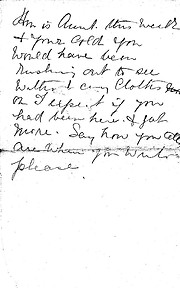 How is Aunt. this week
& your cold you
would have been
rushing out to see
without any Cloths
on I expect if you
had been here. & got
more. Say how you all
are when you write
please.